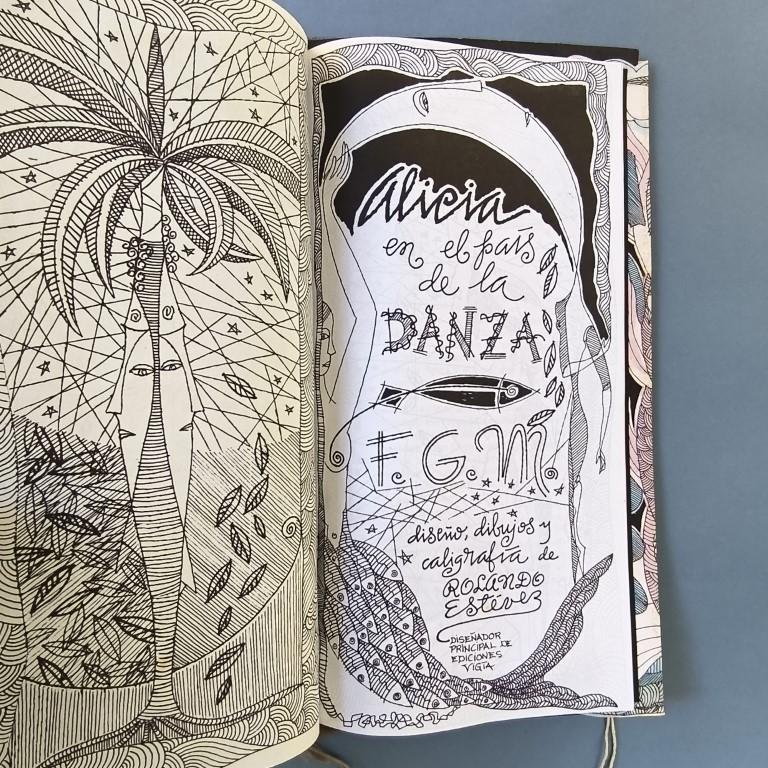 Alicia
en el país
de la
DANZA
F. G. M.
diseño, dibujos y
caligrafía de
ROLANDO
Estévez
DISEÑADOR
PRINCIPAL DE
EDICIONES
VIGÍA